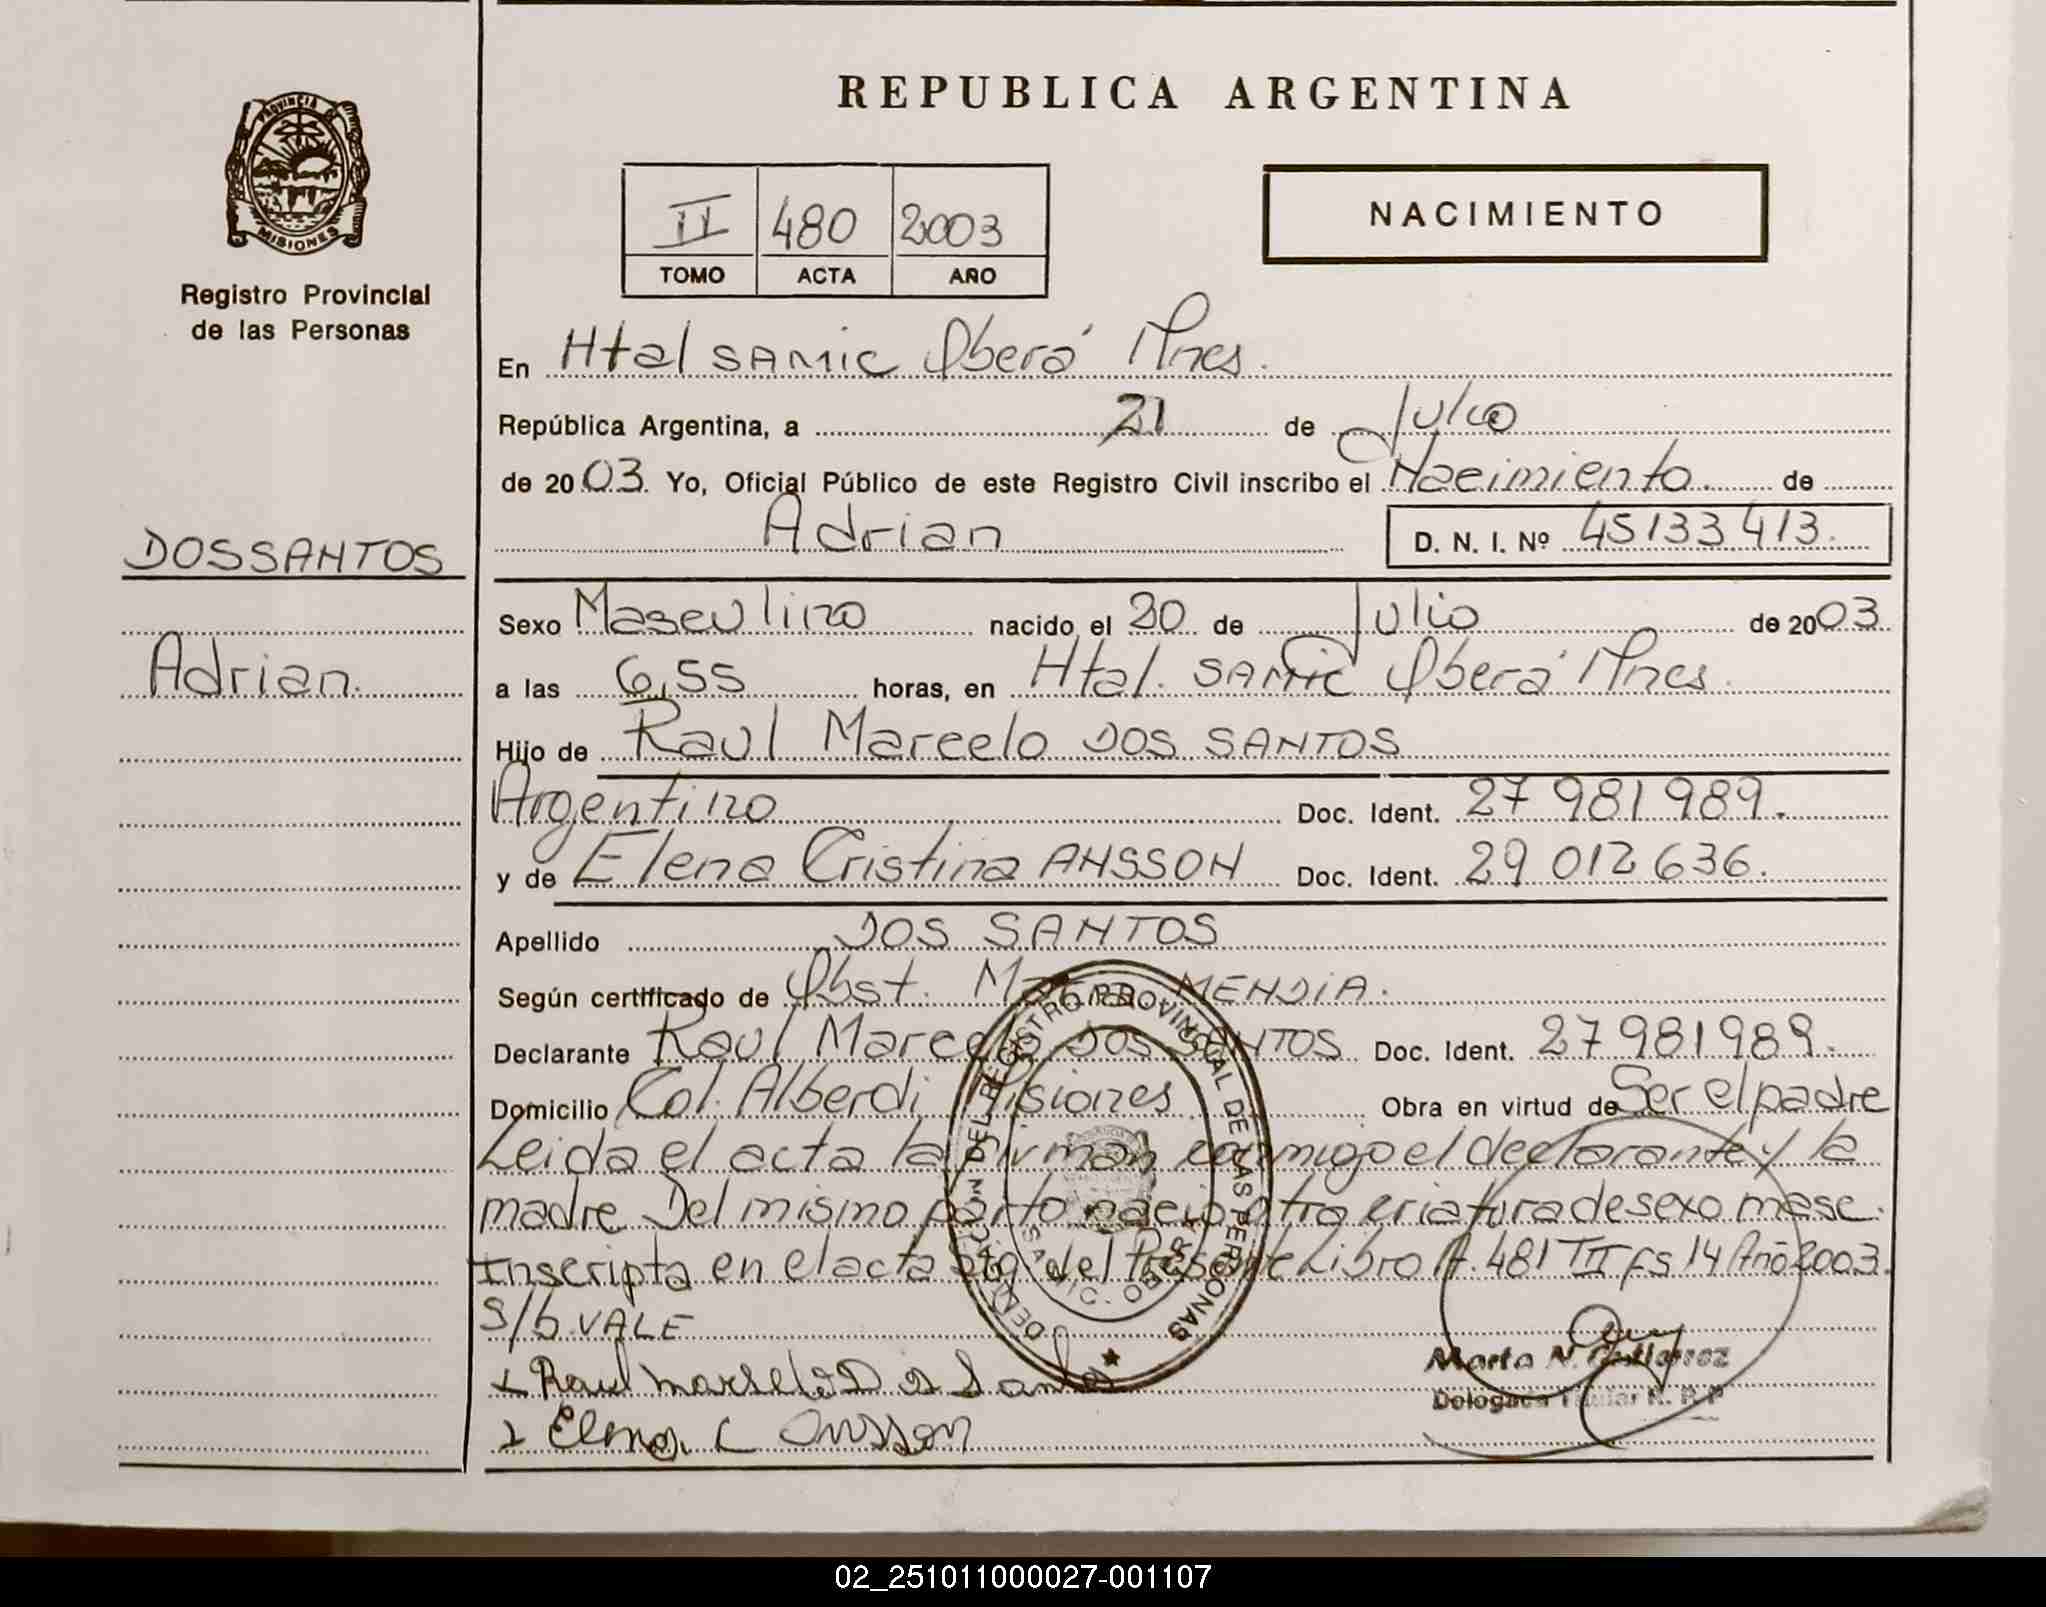 REPUBLICA ARGENTINA
PROVINCIA
MISIONES
Registro Provincial
de las Personas
II 480 2003
TOMO ACTA AÑO
NACIMIENTO
En Htal SAMIC Oberá Mnes.
República Argentina, a 21 de Julio
de 2003. Yo, Oficial Público de este Registro Civil inscribo el Nacimiento de
Adrian D. N. I. Nº 45133413.
DOSSANTOS
Adrian.
Sexo Masculino nacido el 20 de Julio de 2003.
a las 6,55 horas, en Htal. SAMIC Oberá Mnes.
Hijo de Raul Marcelo DOS SANTOS
Argentino Doc. Ident. 27 981 989.
y de Elena Cristina ANSSON Doc. Ident. 29 012 636.
Apellido DOS SANTOS
Según certificado de Obst. MENDIA.
Declarante Raul Marcelo DOS SANTOS Doc. Ident. 27981989.
Domicilio Col. Alberdi Misiones Obra en virtud de Ser el padre
Leida el acta la firman conmigo el declarante y la
madre Del mismo parto nacio otra criatura de sexo masc.
Inscripta en el acta del Presente Libro A. 481 TII Fs 14 Año 2003.
S/b VALE
Raul Marselo D os Santos
Elena C Ansson
DEL REGISTRO PROVINCIAL DE LAS PERSONAS
Marta N. Gutierrez
Delegada Titular R. P. P
02_251011000027-001107